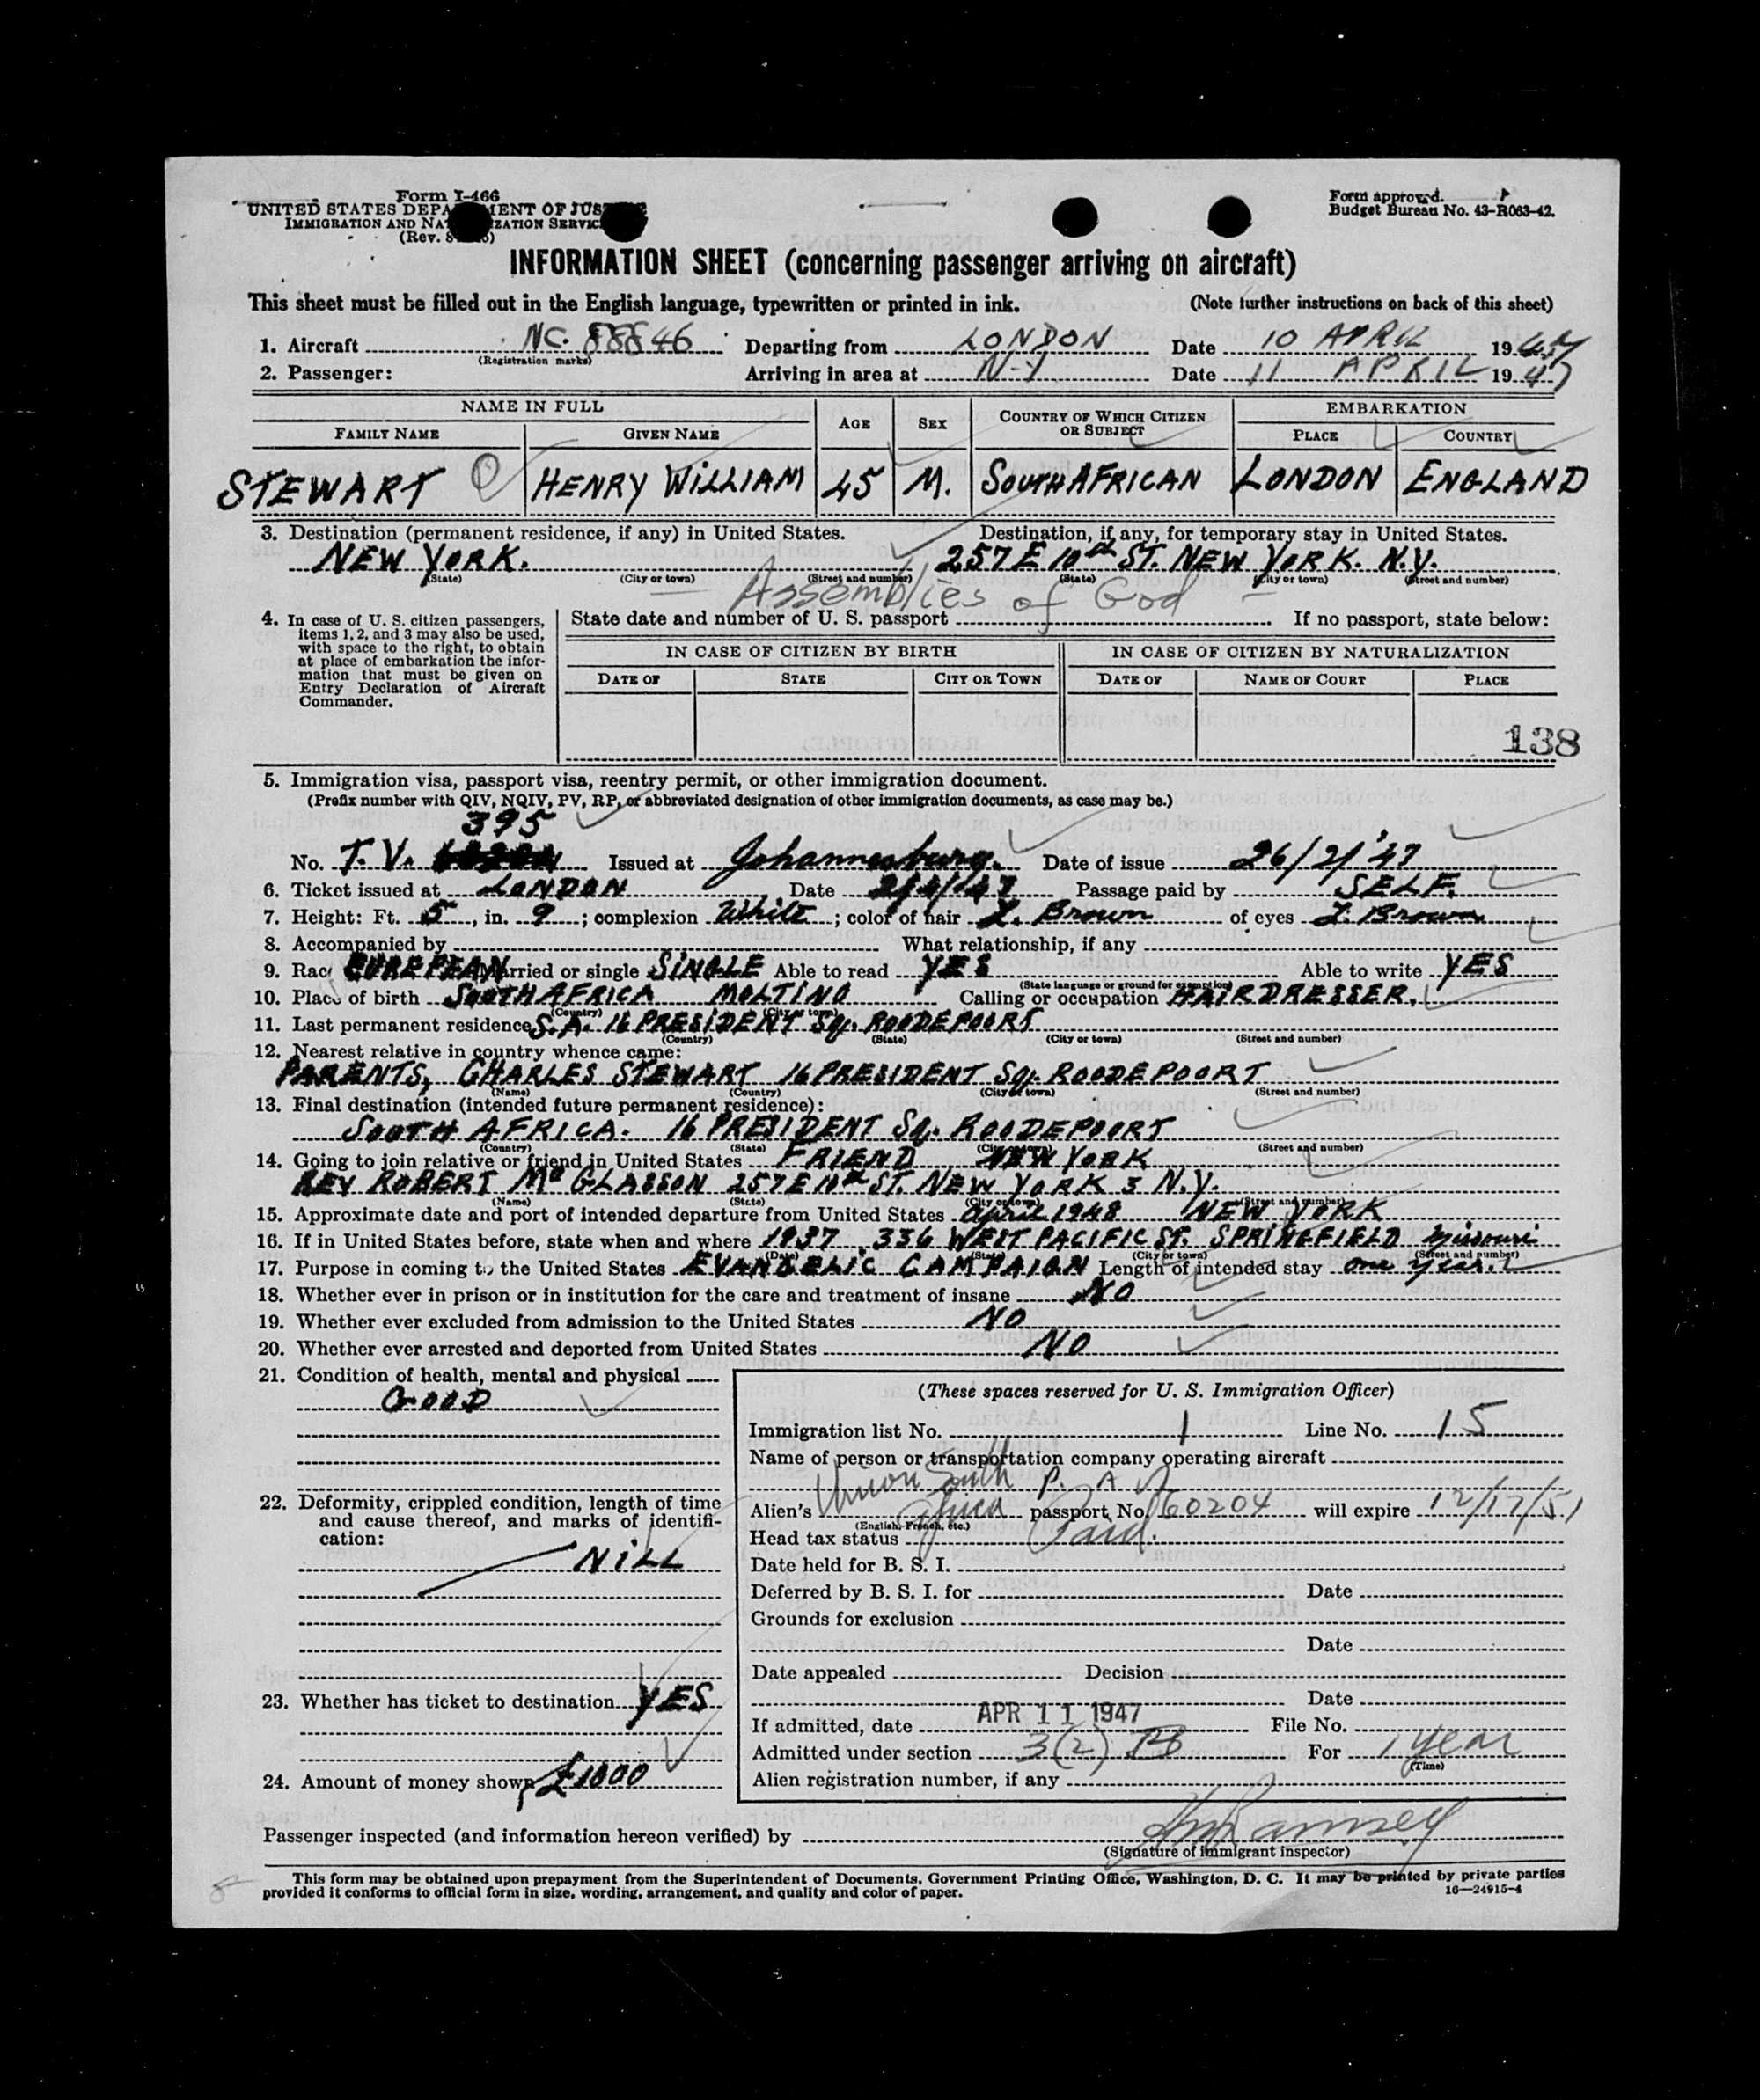 Form I-466
UNITED STATES DEPARTMENT OF JUSTICE
IMMIGRATION AND NATURALIZATION SERVICE
(Rev.
Form approved.
Budget Bureau No. 43-R063-42.
INFORMATION SHEET (concerning passenger arriving on aircraft)
This sheet must be filled out in the English language, typewritten or printed in ink. (Note further instructions on back of this sheet)
1. Aircraft NC. 88846 Departing from LONDON Date 10 APRIL 1947
(Registration marks)
2. Passenger: Arriving in area at N-Y Date 11 APRIL 1947
NAME IN FULL AGE SEX COUNTRY OF WHICH CITIZEN OR SUBJECT EMBARKATION
FAMILY NAME GIVEN NAME PLACE COUNTRY
STEWART HENRY WILLIAM 45 M. SOUTH AFRICAN LONDON ENGLAND
3. Destination (permanent residence, if any) in United States. Destination, if any, for temporary stay in United States.
NEW YORK. 257 E 10th ST. NEW YORK. N.Y.
(State) (City or town) (Street and number) (State) (City or town) (Street and number)
Assemblies of God
4. In case of U. S. citizen passengers, items 1, 2, and 3 may also be used, with space to the right, to obtain at place of embarkation the information that must be given on Entry Declaration of Aircraft Commander.
State date and number of U. S. passport If no passport, state below:
IN CASE OF CITIZEN BY BIRTH IN CASE OF CITIZEN BY NATURALIZATION
DATE OF STATE CITY OR TOWN DATE OF NAME OF COURT PLACE
138
5. Immigration visa, passport visa, reentry permit, or other immigration document.
(Prefix number with QIV, NQIV, PV, RP, or abbreviated designation of other immigration documents, as case may be.)
395
No. T. V. Issued at Johannesburg. Date of issue 26/2/'47
6. Ticket issued at LONDON Date 2/4/47 Passage paid by SELF.
7. Height: Ft. 5, in. 9; complexion White; color of hair L. Brown of eyes L. Brown
8. Accompanied by What relationship, if any
9. Race EUREPEAN Married or single SINGLE Able to read YES Able to write YES
(State language or ground for exemption)
10. Place of birth SOUTH AFRICA MOLTINO Calling or occupation HAIRDRESSER.
(Country) (City or town)
11. Last permanent residence S.A. 16 PRESIDENT Sq. ROODEPOORT
(Country) (State) (City or town) (Street and number)
12. Nearest relative in country whence came:
PARENTS, CHARLES STEWART 16 PRESIDENT Sq. ROODEPOORT
(Name) (Country) (City or town) (Street and number)
13. Final destination (intended future permanent residence):
SOUTH AFRICA. 16 PRESIDENT Sq. ROODEPOORT
(Country) (State) (City or town) (Street and number)
14. Going to join relative or friend in United States FRIEND NEW YORK
REV ROBERT Mc GLASSON 257 E 10th ST. NEW YORK 3 N.Y.
(Name) (State) (City or town) (Street and number)
15. Approximate date and port of intended departure from United States April 1948 NEW YORK
16. If in United States before, state when and where 1937 336 WEST PACIFIC ST. SPRINGFIELD Missouri
(Date) (State) (City or town) (Street and number)
17. Purpose in coming to the United States EVANGELIC CAMPAIGN Length of intended stay one year.
18. Whether ever in prison or in institution for the care and treatment of insane NO
19. Whether ever excluded from admission to the United States NO
20. Whether ever arrested and deported from United States NO
21. Condition of health, mental and physical
GOOD
22. Deformity, crippled condition, length of time and cause thereof, and marks of identification:
NILL
23. Whether has ticket to destination YES
24. Amount of money shown £1000
(These spaces reserved for U. S. Immigration Officer)
Immigration list No. 1 Line No. 15
Name of person or transportation company operating aircraft
P. A A
Alien's Union South Africa passport No. 60204 will expire 12/17/51
(English, French, etc.)
Head tax status Paid.
Date held for B. S. I.
Deferred by B. S. I. for Date
Grounds for exclusion
Date
Date appealed Decision
Date
If admitted, date APR 11 1947 File No.
Admitted under section 3(2) For 1 year
(Time)
Alien registration number, if any
Passenger inspected (and information hereon verified) by Ramsey
(Signature of immigrant inspector)
This form may be obtained upon prepayment from the Superintendent of Documents, Government Printing Office, Washington, D. C. It may be printed by private parties
provided it conforms to official form in size, wording, arrangement, and quality and color of paper. 16—24915-4